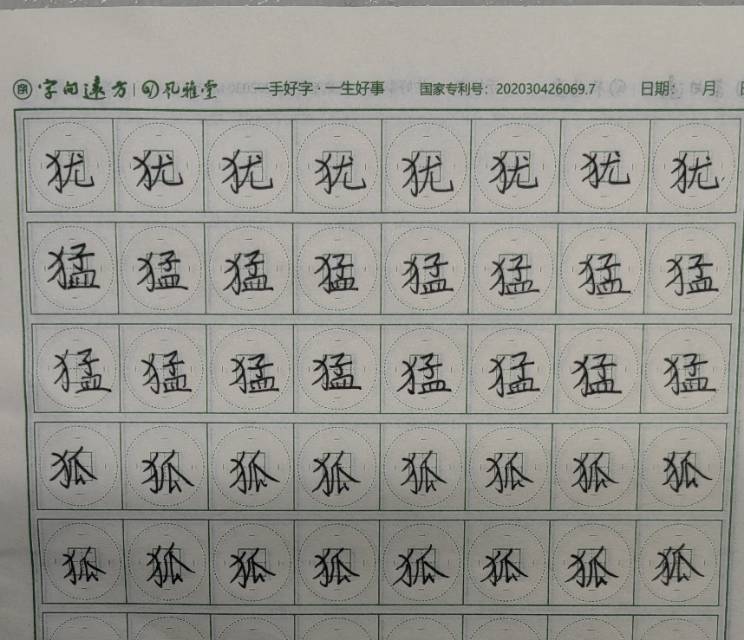 字向远方 凡雅堂 一手好字·一生好事 国家专利号：202030426069.7 日期： 月
犹犹犹犹犹犹犹犹
猛猛猛猛猛猛猛猛
猛猛猛猛猛猛猛猛
狐狐狐狐狐狐狐狐
狐狐狐狐狐狐狐狐